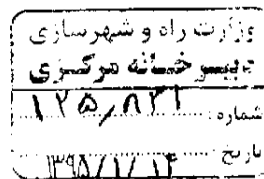 وزارت راه و شهرسازی
دبیرخانه مرکزی
شماره: ۱۲۵/۸۳۱
تاریخ: ۱۳۹۵/۱/۱۴